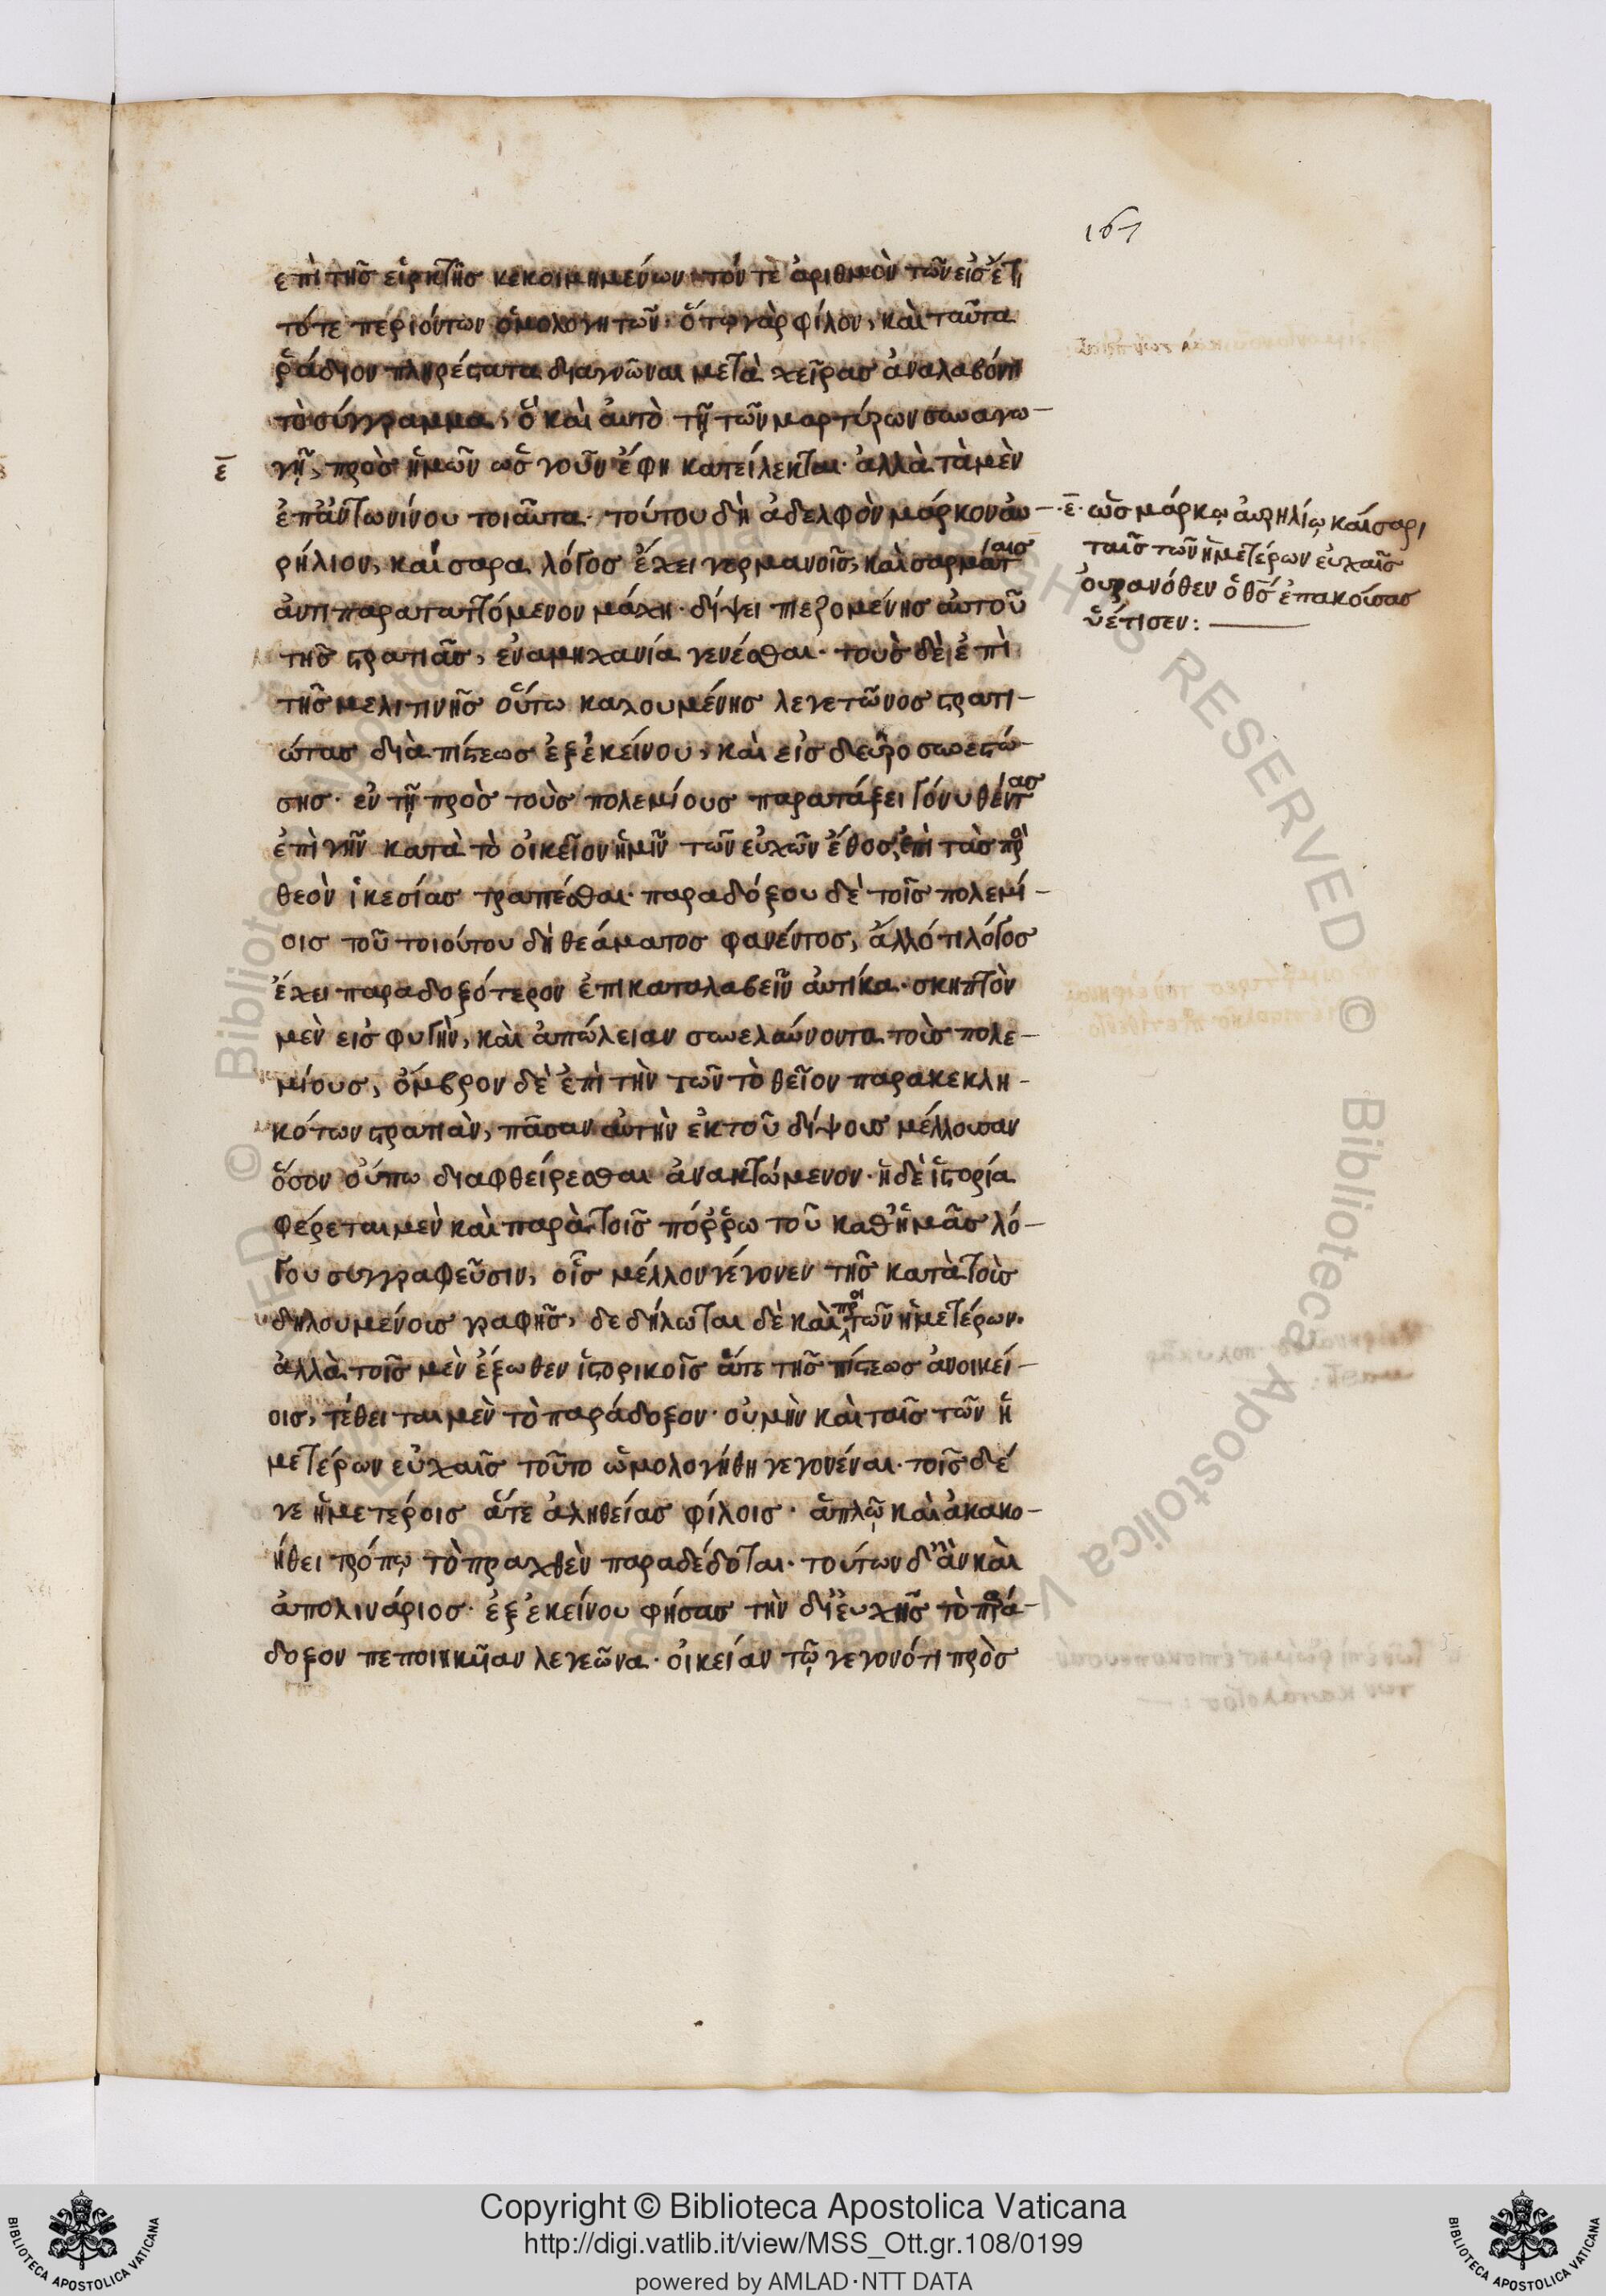 167
ἐπὶ τῆς εἱρκτῆς κεκοιμημένων· τόν τε ἀριθμὸν τῶν εἰσέτι
τότε περιόντων ὁμολογητῶν· ὅτω γὰρ φίλον, καὶ ταῦτα
ῥάδιον πληρέστατα διαγνῶναι μετὰ χεῖρας ἀναλαβόντι
τὸ σύγγραμμα, ὃ καὶ αὐτὸ τῇ τῶν μαρτύρων συναγω-
ε γῇ, πρὸς ἡμῶν ὡς γοῦν ἔφη κατείλεκται· ἀλλὰ τὰ μὲν
ἐπ' ἀντωνίνου τοιαῦτα· τούτου δὴ ἀδελφὸν μάρκον αὐ-
ρήλιον, καίσαρα λόγος ἔχει γερμανοῖς, καὶ σαρμάταις
ἀντιπαραταττόμενον μάχη· δίψει πιεζομένης αὐτοῦ
τῆς στρατιᾶς, ἐν ἀμηχανία γενέσθαι· τοὺς δὲ ἐπὶ
τῆς μελιτινῆς οὕτω καλουμένης λεγεῶνος στρατι-
ώτας διὰ πίστεως ἐξ ἐκείνου, καὶ εἰς δεῦρο συνεστώ-
σης· ἐν τῇ πρὸς τοὺς πολεμίους παρατάξει γόνυ θέντας
ἐπὶ γῆν κατὰ τὸ οἰκεῖον ἡμῖν τῶν εὐχῶν ἔθος, ἐπὶ τὰς πρὸς
θεὸν ἱκεσίας τραπέσθαι· παραδόξου δὲ τοῖς πολεμί-
οις τοῦ τοιούτου δὴ θεάματος φανέντος, ἄλλό τι λόγος
ἔχει παραδοξότερον ἐπικαταλαβεῖν αὐτίκα· σκηπτὸν
μὲν εἰς φυγὴν, καὶ ἀπώλειαν συνελαύνοντα τοὺς πολε-
μίους, ὄμβρον δὲ ἐπὶ τὴν τῶν τὸ θεῖον παρακεκλη-
κότων στρατιὰν, πᾶσαν αὐτὴν ἐκ τοῦ δίψους μέλλουσαν
ὅσον οὔπω διαφθείρεσθαι ἀνακτώμενον· ἡ δὲ ἱστορία
φέρεται μὲν καὶ παρὰ τοῖς πόῤῥω τοῦ καθ' ἡμᾶς λό-
γου συγγραφεῦσιν, οἷς μέλλον γέγονεν τῆς κατὰ τοὺς
δηλουμένους γραφῆς, δεδήλωται δὲ καὶ προὶ τῶν ἡμετέρων.
ἀλλὰ τοῖς μὲν ἔξωθεν ἱστορικοῖς ἅτε τῆς πίστεως ἀνοικεί-
οις, τέθειται μὲν τὸ παράδοξον· οὐ μὴν καὶ ταῖς τῶν ἡ
μετέρων εὐχαῖς τοῦτο ὡμολογήθη γεγονέναι· τοῖς δέ
γε ἡμετέροις ἅτε ἀληθείας φίλοις· ἁπλῷ καὶ ἀκακο-
ήθει τρόπῳ τὸ πραχθὲν παραδέδοται· τούτων δ' ἂν καὶ
ἀπολινάριος· ἐξ ἐκείνου φήσας τὴν δι' εὐχῆς τὸ παρά-
δοξον πεποιηκυῖαν λεγεῶνα· οἰκείαν τῷ γεγονότι πρὸς
·ε· ὡς μάρκῳ αὐρηλίῳ καίσαρι
ταῖς τῶν ἡμετέρων εὐχαῖς
οὐρανόθεν ὁ θς ἐπακούσας
ὑέτισεν:
Copyright © Biblioteca Apostolica Vaticana
http://digi.vatlib.it/view/MSS_Ott.gr.108/0199
powered by AMLAD·NTT DATA
BIBLIOTECA APOSTOLICA VATICANA
BIBLIOTECA APOSTOLICA VATICANA